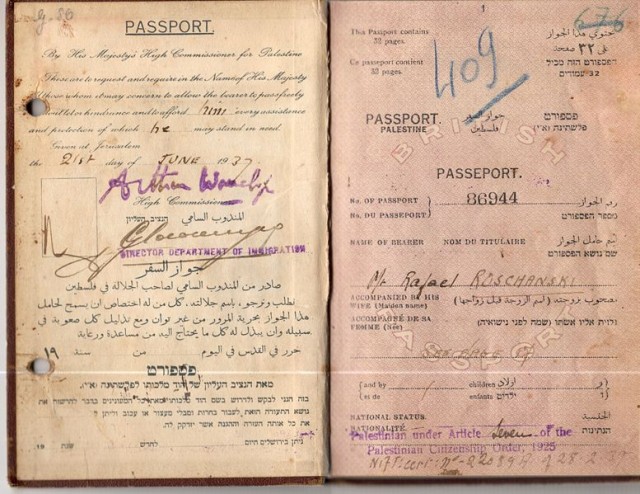 PASSPORT.
By His Majesty's High Commissioner for Palestine
These are to request and require in the Name of His Majesty
all those whom it may concern to allow the bearer to pass freely
without let or hindrance and to afford him every assistance
and protection of which he may stand in need.
Given at Jerusalem
the 21st day of JUNE 1937
High Commissioner
المندوب السامي הנציב העליון
DIRECTOR DEPARTMENT OF IMMIGRATION
جواز السفر
صادر من المندوب السامي لصاحب الجلالة في فلسطين
نطلب ونرجو، باسم جلالته، كل من له اختصاص ان يسمح لحامل
هذا الجواز بحرية المرور من غير توان ومع تذليل كل صعوبة في
سبيله وان يبذل له كل ما يحتاج اليه من مساعدة ورعاية
حرر في القدس في اليوم من سنة ١٩
פספורט
מאת הנציב העליון של הוד מלכותו לפלשתינה א״י.
ניתן בירושלים היום לחדש שנת 19
1
676
This Passport contains
32 pages.
Ce passeport contient
32 pages.
يحتوي هذا الجواز
على ٣٢ صفحة
הפספורט הזה מכיל
32 עמודים
409
PASSPORT.
PALESTINE
جواز سفر
فلسطين
פספורט
פלשתינה (א״י)
BRITISH
PASSPORT
PASSEPORT.
No. OF PASSPORT
No. DU PASSEPORT
86944
رقم الجواز
מספר הפספורט
NAME OF BEARER NOM DU TITULAIRE
اسم حامل الجواز
שם נושא הפספורט
Mr Rafael ROSCHANSKI
ACCOMPANIED BY HIS
WIFE (Maiden name)
مصحوب بزوجته (اسم الزوجة قبل زواجها)
ACCOMPAGNÉ DE SA
FEMME (Née)
לוית אליו אשתו (שמה לפני נישואיה)
(and by children اولاد و)
(et de enfants ילדים
NATIONAL STATUS.
NATIONALITÉ.
الجنسية
הנתינות
Palestinian under Article Seven of the
Palestinian Citizenship Order, 1925